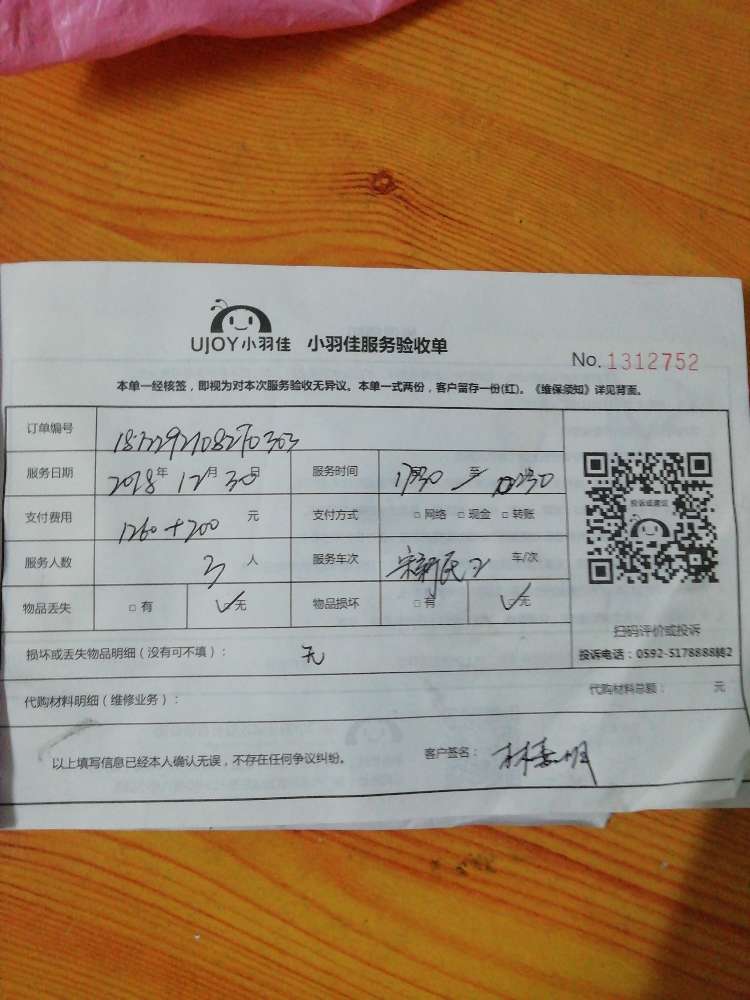 UJOY小羽佳 小羽佳服务验收单
No. 1312752
本单一经核签，即视为对本次服务验收无异议。本单一式两份，客户留存一份(红)。《维保须知》详见背面。
订单编号
服务日期 2018年12月30日 服务时间 17:30 至
支付费用 1260+200 元 支付方式 □网络 □现金 □转账
服务人数 3 人 服务车次 车/次
物品丢失 □有 ✓无 物品损坏 □有 ✓无
投诉或建议
扫码评价或投诉
投诉电话：0592-5178888转2
损坏或丢失物品明细（没有可不填）： 无
代购材料明细（维修业务）： 代购材料总额： 元
以上填写信息已经本人确认无误，不存在任何争议纠纷。 客户签名：